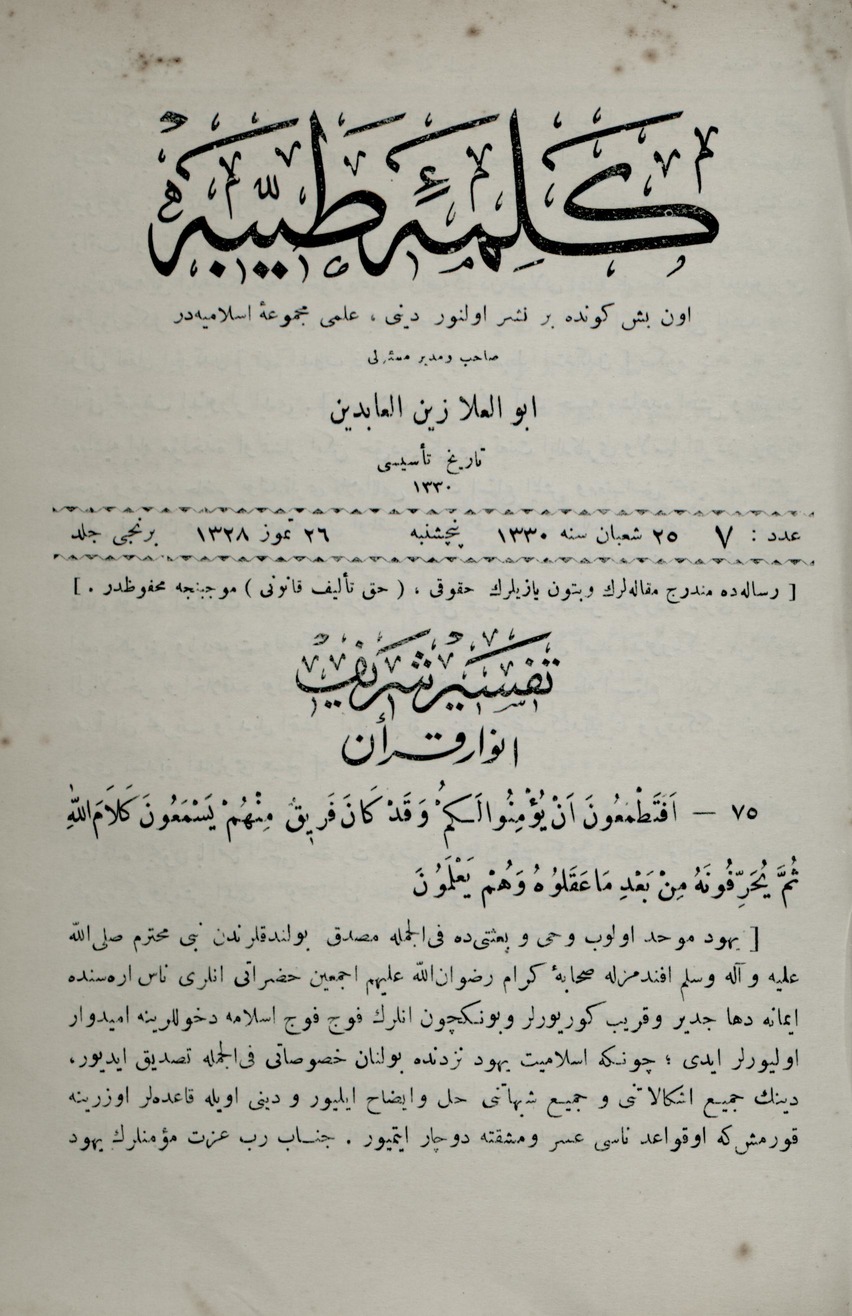 كلمۀ طيبه
اون بش كونده بر نشر اولنور دينى ، علمى مجموعۀ اسلاميه‌در
صاحب ومدير مسئولى
ابو العلا زين العابدين
تاريخ تأسيسى
١٣٣٠
عدد : ٧ ٢٥ شعبان سنه ١٣٣٠ پنچشنبه ٢٦ تموز ١٣٢٨ برنجى جلد
[ رساله‌ده مندرج مقاله‌لرك وبتون يازيلرك حقوقى ، ( حق تأليف قانونى ) موجبنجه محفوظدر . ]
تفسير شريف
انوار قرأن
٧٥ — اَفَتَطْمَعُونَ اَنْ يُؤْمِنُوا لَكُمْ وَقَدْ كَانَ فَرِيقٌ مِنْهُمْ يَسْمَعُونَ كَلَامَ اللّٰهِ
ثُمَّ يُحَرِّفُونَهُ مِنْ بَعْدِ مَا عَقَلُوهُ وَهُمْ يَعْلَمُونَ
[ يهود موحد اولوب وحى و بعثتى‌ده فى‌الجمله مصدق بولندقلرندن نبى محترم صلى‌الله
عليه و آله وسلم افندمزله صحابۀ كرام رضوان‌الله عليهم اجمعين حضراتى انلرى ناس اره‌سنده
ايمانه دها جدير وقريب كوريورلر وبونكچون انلرك فوج فوج اسلامه دخوللرينه اميدوار
اوليورلر ايدى ؛ چونكه اسلاميت يهود نزدنده بولنان خصوصاتى فى‌الجمله تصديق ايديور،
دينك جميع اشكالاتنى و جميع شبهاتنى حل وايضاح ايليور و دينى اويله قاعده‌لر اوزرينه
قورمش‌كه اوقواعد ناسى عسر ومشقته دوچار ايتميور . جناب رب عزت مؤمنلرك يهود